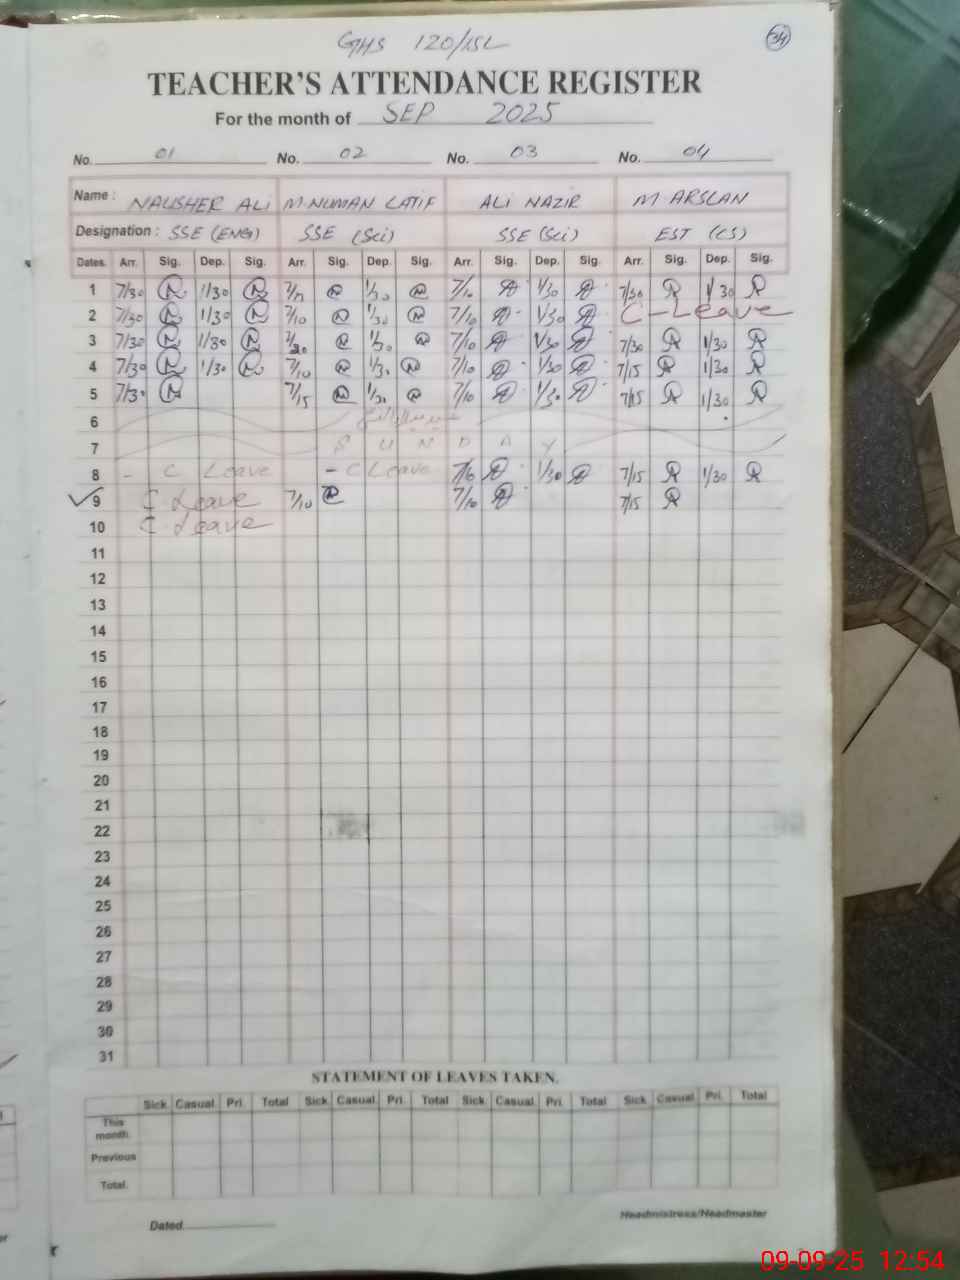 GHS 120/15L
34
TEACHER'S ATTENDANCE REGISTER
For the month of SEP 2025
No. 01 No. 02 No. 03 No. 04
Name : NAUSHER ALI M.NUMAN LATIF ALI NAZIR M ARSLAN
Designation : SSE (ENG) SSE (Sci) SSE (Sci) EST (CS)
Dates. Arr. Sig. Dep. Sig. Arr. Sig. Dep. Sig. Arr. Sig. Dep. Sig. Arr. Sig. Dep. Sig.
1 7/30 1/30 1/30 7/10 1/30 7/30 1/30
2 7/30 1/30 7/10 1/30 7/10 1/30 C-Leave
3 7/30 1/30 7/30 1/30 7/10 1/30 7/30 1/30
4 7/30 1/30 7/10 1/30 7/10 1/30 7/15 1/30
5 7/30 7/15 1/30 7/10 1/30 7/15 1/30
6
7 S U N D A Y
8 - C Leave - C Leave 7/10 1/30 7/15 1/30
9 C Leave 7/10 7/10 7/15
10 C Leave
11
12
13
14
15
16
17
18
19
20
21
22
23
24
25
26
27
28
29
30
31
STATEMENT OF LEAVES TAKEN.
Sick Casual Pri. Total Sick. Casual Pri. Total Sick. Casual Pri. Total Sick. Casual Pri. Total
This month.
Previous
Total.
Dated
Headmistress/Headmaster
09-09-25 12:54